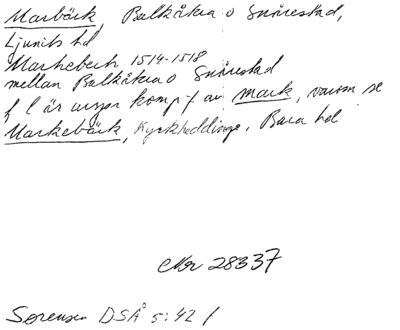 Marbäck, Balkåkra o Snårestad,
Ljunits hd
Markebech 1514-1518
mellan Balkåkra o Snårestad
f l är urspr komp-f av mark, varom se
Markebäck, Kyrkheddinge, Bara hd
Nr 28337
Sørensen DSÅ 5:42 /